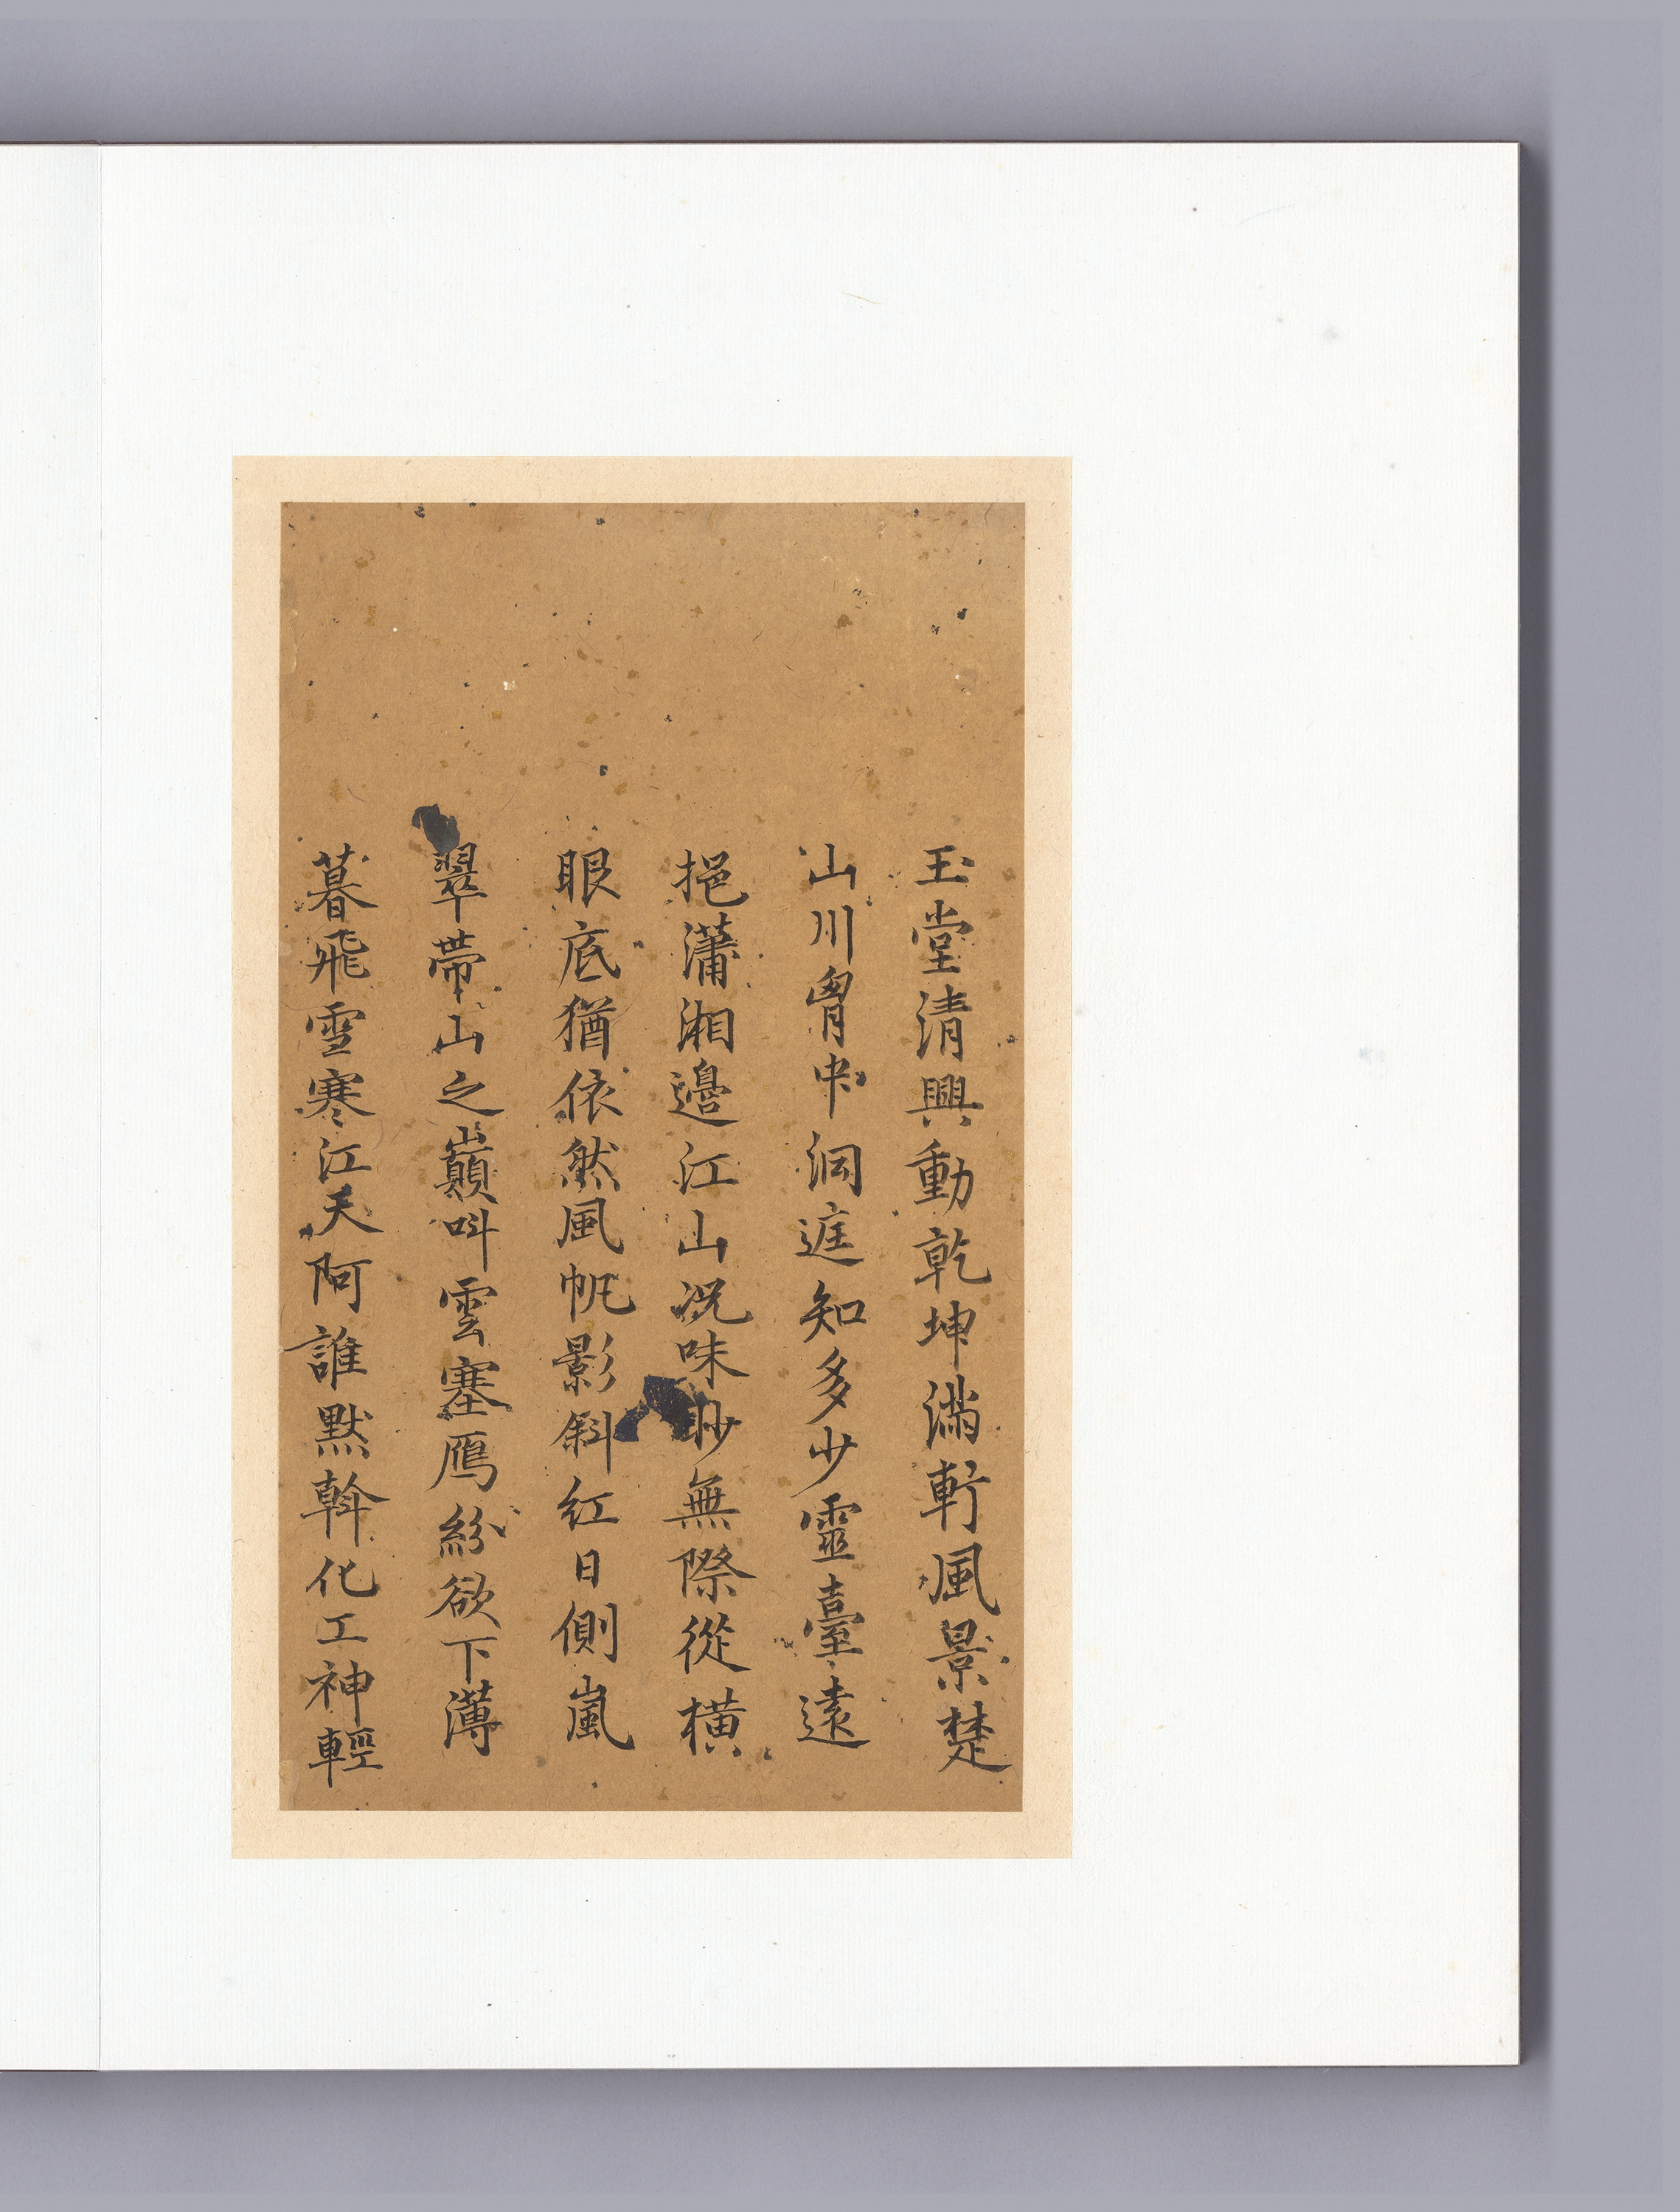 玉堂清興動乾坤滿軒風景楚
山川胷中洞庭知多少靈臺遠
挹瀟湘邊江山况味眇無際從橫
眼底猶依然風帆影斜紅日側嵐
翠帶山之巔叫雲塞鴈紛欲下薄
暮飛雪寒江天阿誰默斡化工神輕